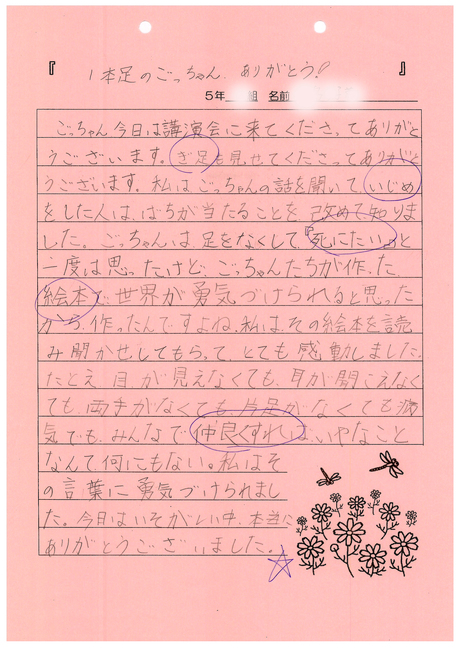 『 1本足のごっちゃん、ありがとう! 』
5年 組 名前
ごっちゃん今日は講演会に来てくださってありがと
うございます。ぎ足も見せてくださってありがと
うございます。私はごっちゃんの話を聞いて、いじめ
をした人は、ばちが当たることを、改めて知りま
した。ごっちゃんは足をなくして、『死にたい。』と
一度は思ったけど、ごっちゃんたちが作った、
絵本で、世界が勇気づけられると思った
から、作ったんですよね。私は、その絵本を読
み聞かせしてもらって、とても感動しました。
たとえ、目が見えなくても、耳が聞こえなく
ても、両手がなくても、片足がなくても、病
気でも、みんなで仲良くすれば、いやなこと
なんて、何にもない。私はそ
の言葉に勇気づけられまし
た。今日はいそがしい中、本当に
ありがとうございました。